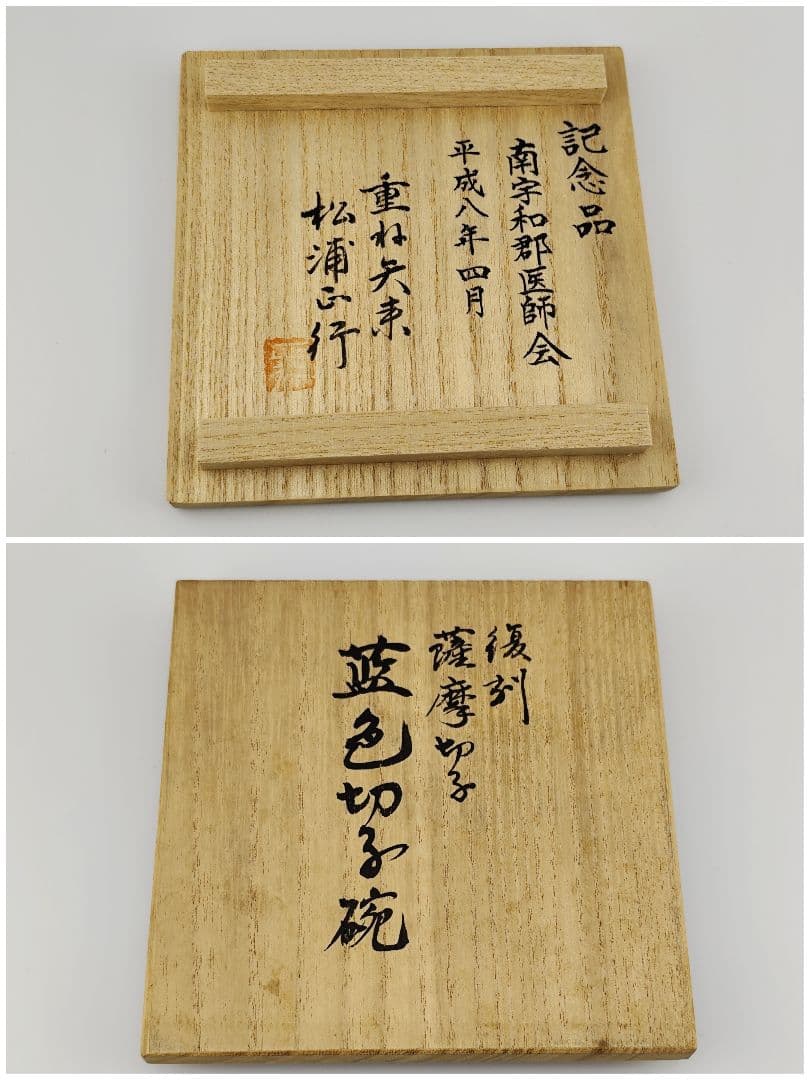 記念品
南宇和郡医師会
平成八年四月
重ね矢来
松浦正行
復刻
薩摩切子
藍色切子碗